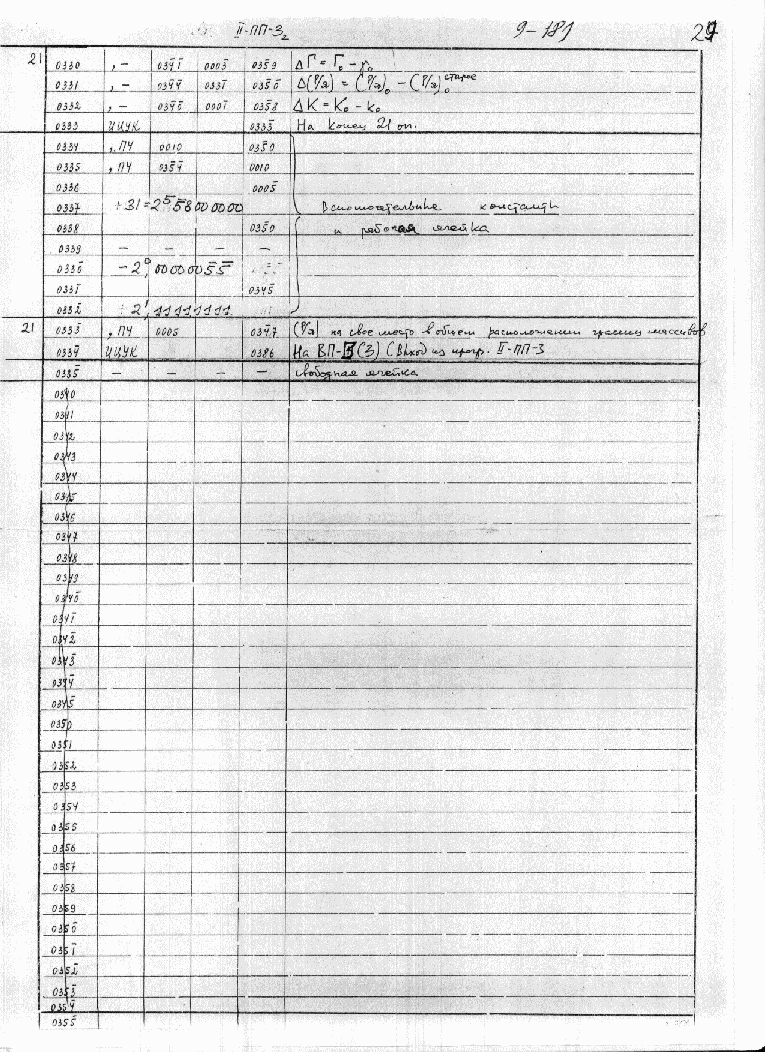 II-ПП-3₂ 9-181 29
21 0330 , – 034̄1̄ 0003̄ 035̄9 ΔГ = Г₀ – г₀
0331 , – 034̄4̄ 0331̄ 035̄0̄ Δ(Р/э) = (Р/э)₀ – (Р/э)₀ старое
0332 , – 034̄0̄ 0001̄ 035̄8 ΔК = К₀ – к₀
0333 ЦЦУК 0333̄ На конец 21 оп.
0334 , ПЧ 0010 035̄0
0335 , ПЧ 035̄4̄ 0010
0336 0005̄
0337 +31=2 5̄ 5800 00 00 Вспомогательные константы
0338 035̄0 и рабочая ячейка
0339 – – – –
033̄0̄ – 2⁰, 00 00 00 5̄5̄
033̄1̄ 034̄5̄
033̄2̄ + 2¹, 11 11 11 11
21 033̄3̄ , ПЧ 0005 034̄7 (Р/э) на свое место в общем расположении границ массивов
033̄4̄ ЦЦУК 0386 На ВП- (3) (Выход из прогр. II-ПП-3
033̄5̄ – – – – свободная ячейка
0340
0341
0342
0343
0344
0345
0346
0347
0348
0349
034̄0̄
034̄1̄
034̄2̄
034̄3̄
034̄4̄
034̄5̄
0350
0351
0352
0353
0354
0355
0356
0357
0358
0359
035̄0̄
035̄1̄
035̄2̄
035̄3̄
035̄4̄
035̄5̄